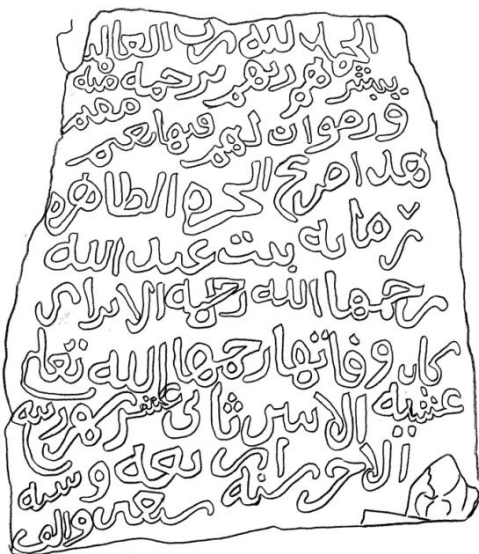 الحمد لله رب العالمين
يبشرهم ربهم برحمه منه
ورضوان لهم فيها نعيم مقيم
هذا ضريح الحره الطاهره
بنت عبد الله
رحمها الله رحمه الابرار
كان وفاتها رحمها الله تعالى
عشيه الاثنين ثانى عشر شهر ربيع
الاخر سنه اربعه و
سبعين والف